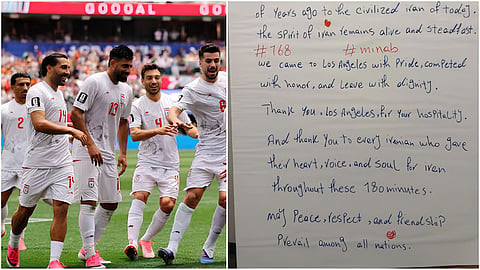 GOOOAL
2
14
13
4
of Years ago to the civilized iran of today,
the spirit of iran remains alive and steadfast.
#168 #minab
we came to Los Angeles with Pride, competed
with honor, and Leave with dignity.
Thank you, Los Angeles, for your hospitality.
And thank you to every iranian who gave
their heart, voice, and soul for iran
throughout these 180minutes.
may Peace, respect, and friendship
Prevail among all nations.